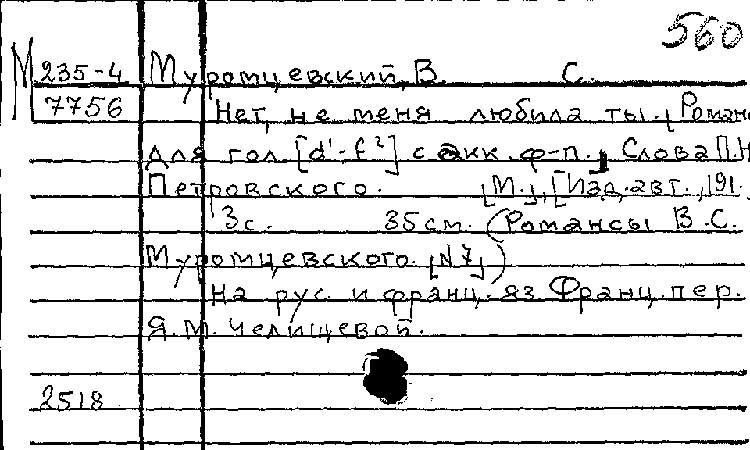 560
М 235-4 Муромцевский, В. С.
7756 Нет, не меня любила ты. [Романс
для гол. [d¹-f²] с акк. ф-п.] Слова П.Н
Петровского. [М.], [Изд. авт., 191.
3с. 35см. (Романсы В.С.
Муромцевского. [№7])
На рус. и франц. яз. Франц. пер.
Я.М. Челищевой.
2518